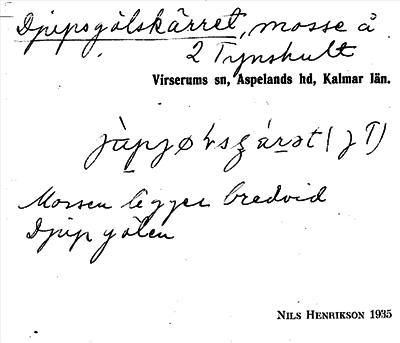 Djupsgölskärret, mosse å
2 Tynshult
Virserums sn, Aspelands hd, Kalmar län.
Mossen ligger bredvid
Djup gölen
NILS HENRIKSON 1935